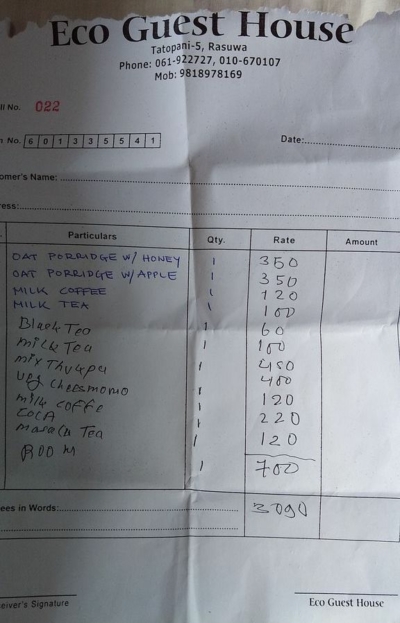 Eco Guest House
Tatopani-5, Rasuwa
Phone: 061-922727, 010-670107
Mob: 9818978169
ll No. 022
n No. 601335541
Date:
omer's Name:
ress:
Particulars Qty. Rate Amount
OAT PORRIDGE W/ HONEY 1 350
OAT PORRIDGE W/ APPLE 1 350
MILK COFFEE 1 120
MILK TEA 1 100
Black Tea 1 60
milk Tea 1 100
mix Thukpa 1 450
veg cheesmomo 400
milk coffe 1 120
COCA 1 220
masala Tea 1 120
Room 1 700
ees in Words: 3090
ceiver's Signature
Eco Guest House